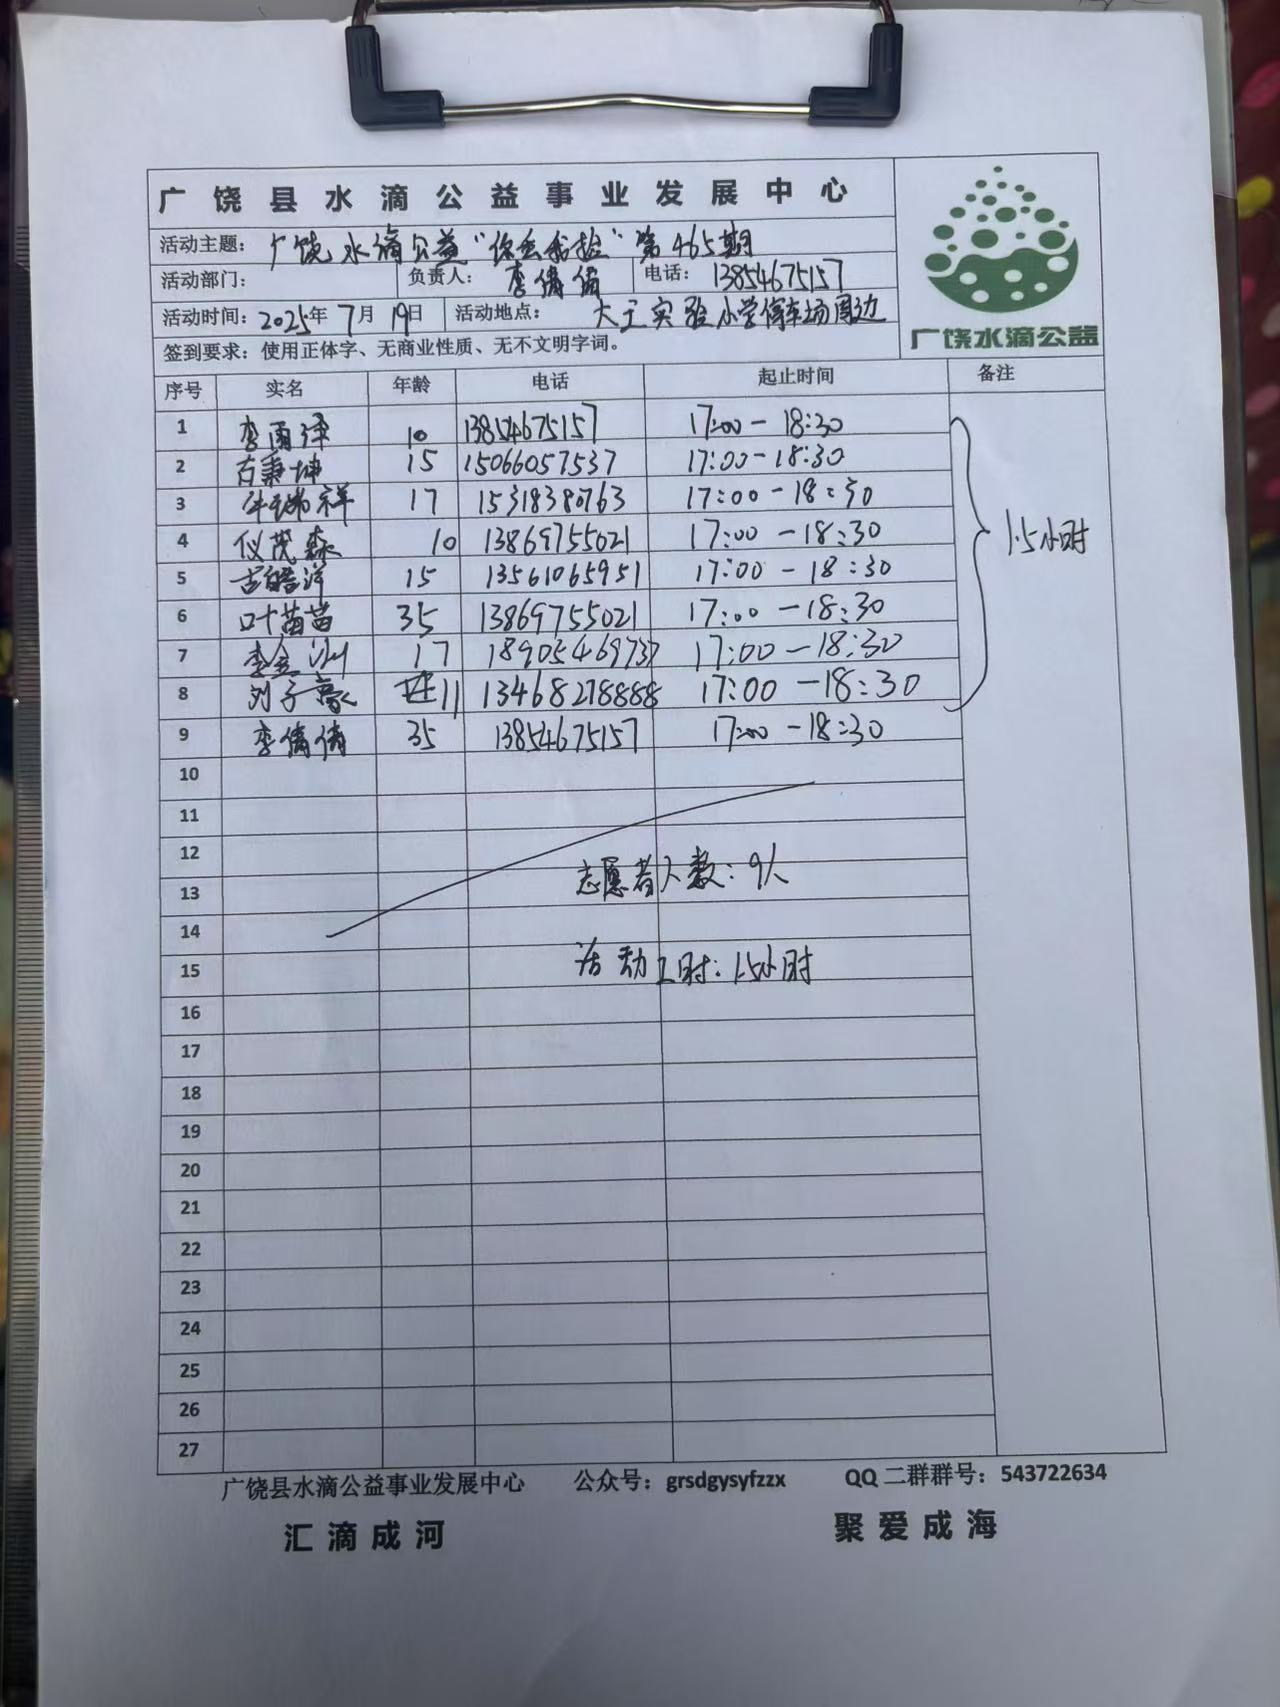 广饶县水滴公益事业发展中心
活动主题：广饶水滴公益“你丢我捡”第465期
活动部门： 负责人：李倩倩 电话：13854675157
活动时间：2025年7月19日 活动地点：大王实验小学停车场周边
签到要求：使用正体字、无商业性质、无不文明字词。
广饶水滴公益
序号 实名 年龄 电话 起止时间 备注
1 李雨泽 10 13854675157 17:00-18:30
2 石秉坤 15 15066057537 17:00-18:30
3 瑞祥 17 15318380763 17:00-18:30
4 仪茂森 10 13869755021 17:00-18:30
1.5小时
5 15 13561065951 17:00-18:30
6 叶苗苗 35 13869755021 17:00-18:30
7 李金洲 17 18905469737 17:00-18:30
8 刘子豪 11 13468278888 17:00-18:30
9 李倩倩 35 13854675157 17:00-18:30
10
11
12
志愿者人数：9人
13
14
15 活动工时：1.5小时
16
17
18
19
20
21
22
23
24
25
26
27
广饶县水滴公益事业发展中心 公众号：grsdgysyfzzx QQ二群群号：543722634
汇滴成河 聚爱成海